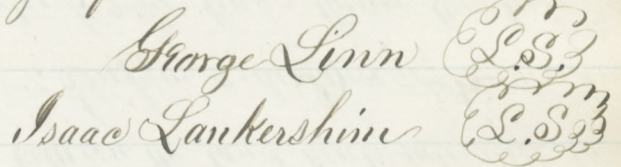 George Linn L.S.
Isaac Lankershim L.S.